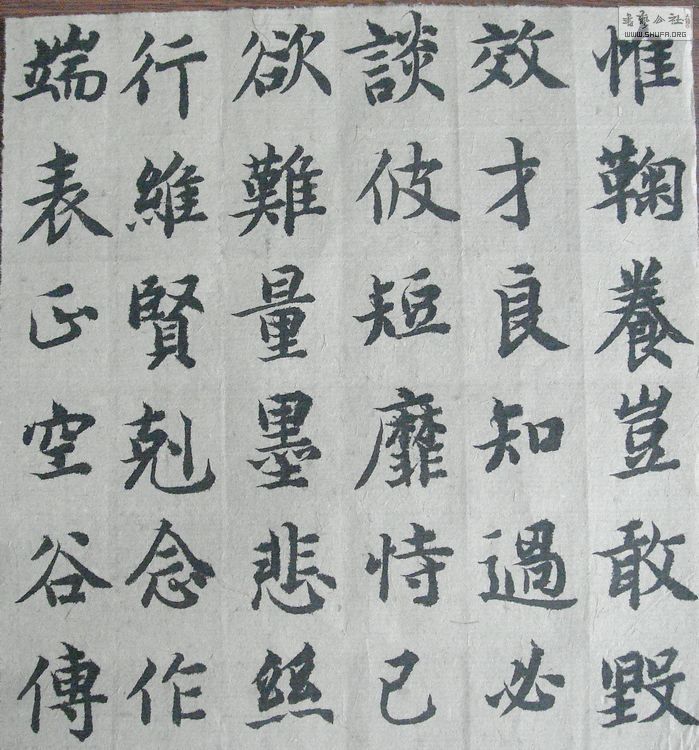 惟鞠養豈敢毀
效才良知過必
談彼短靡恃己
欲難量墨悲絲
行維賢剋念作
端表正空谷傳
書藝公社
WWW.SHUFA.ORG